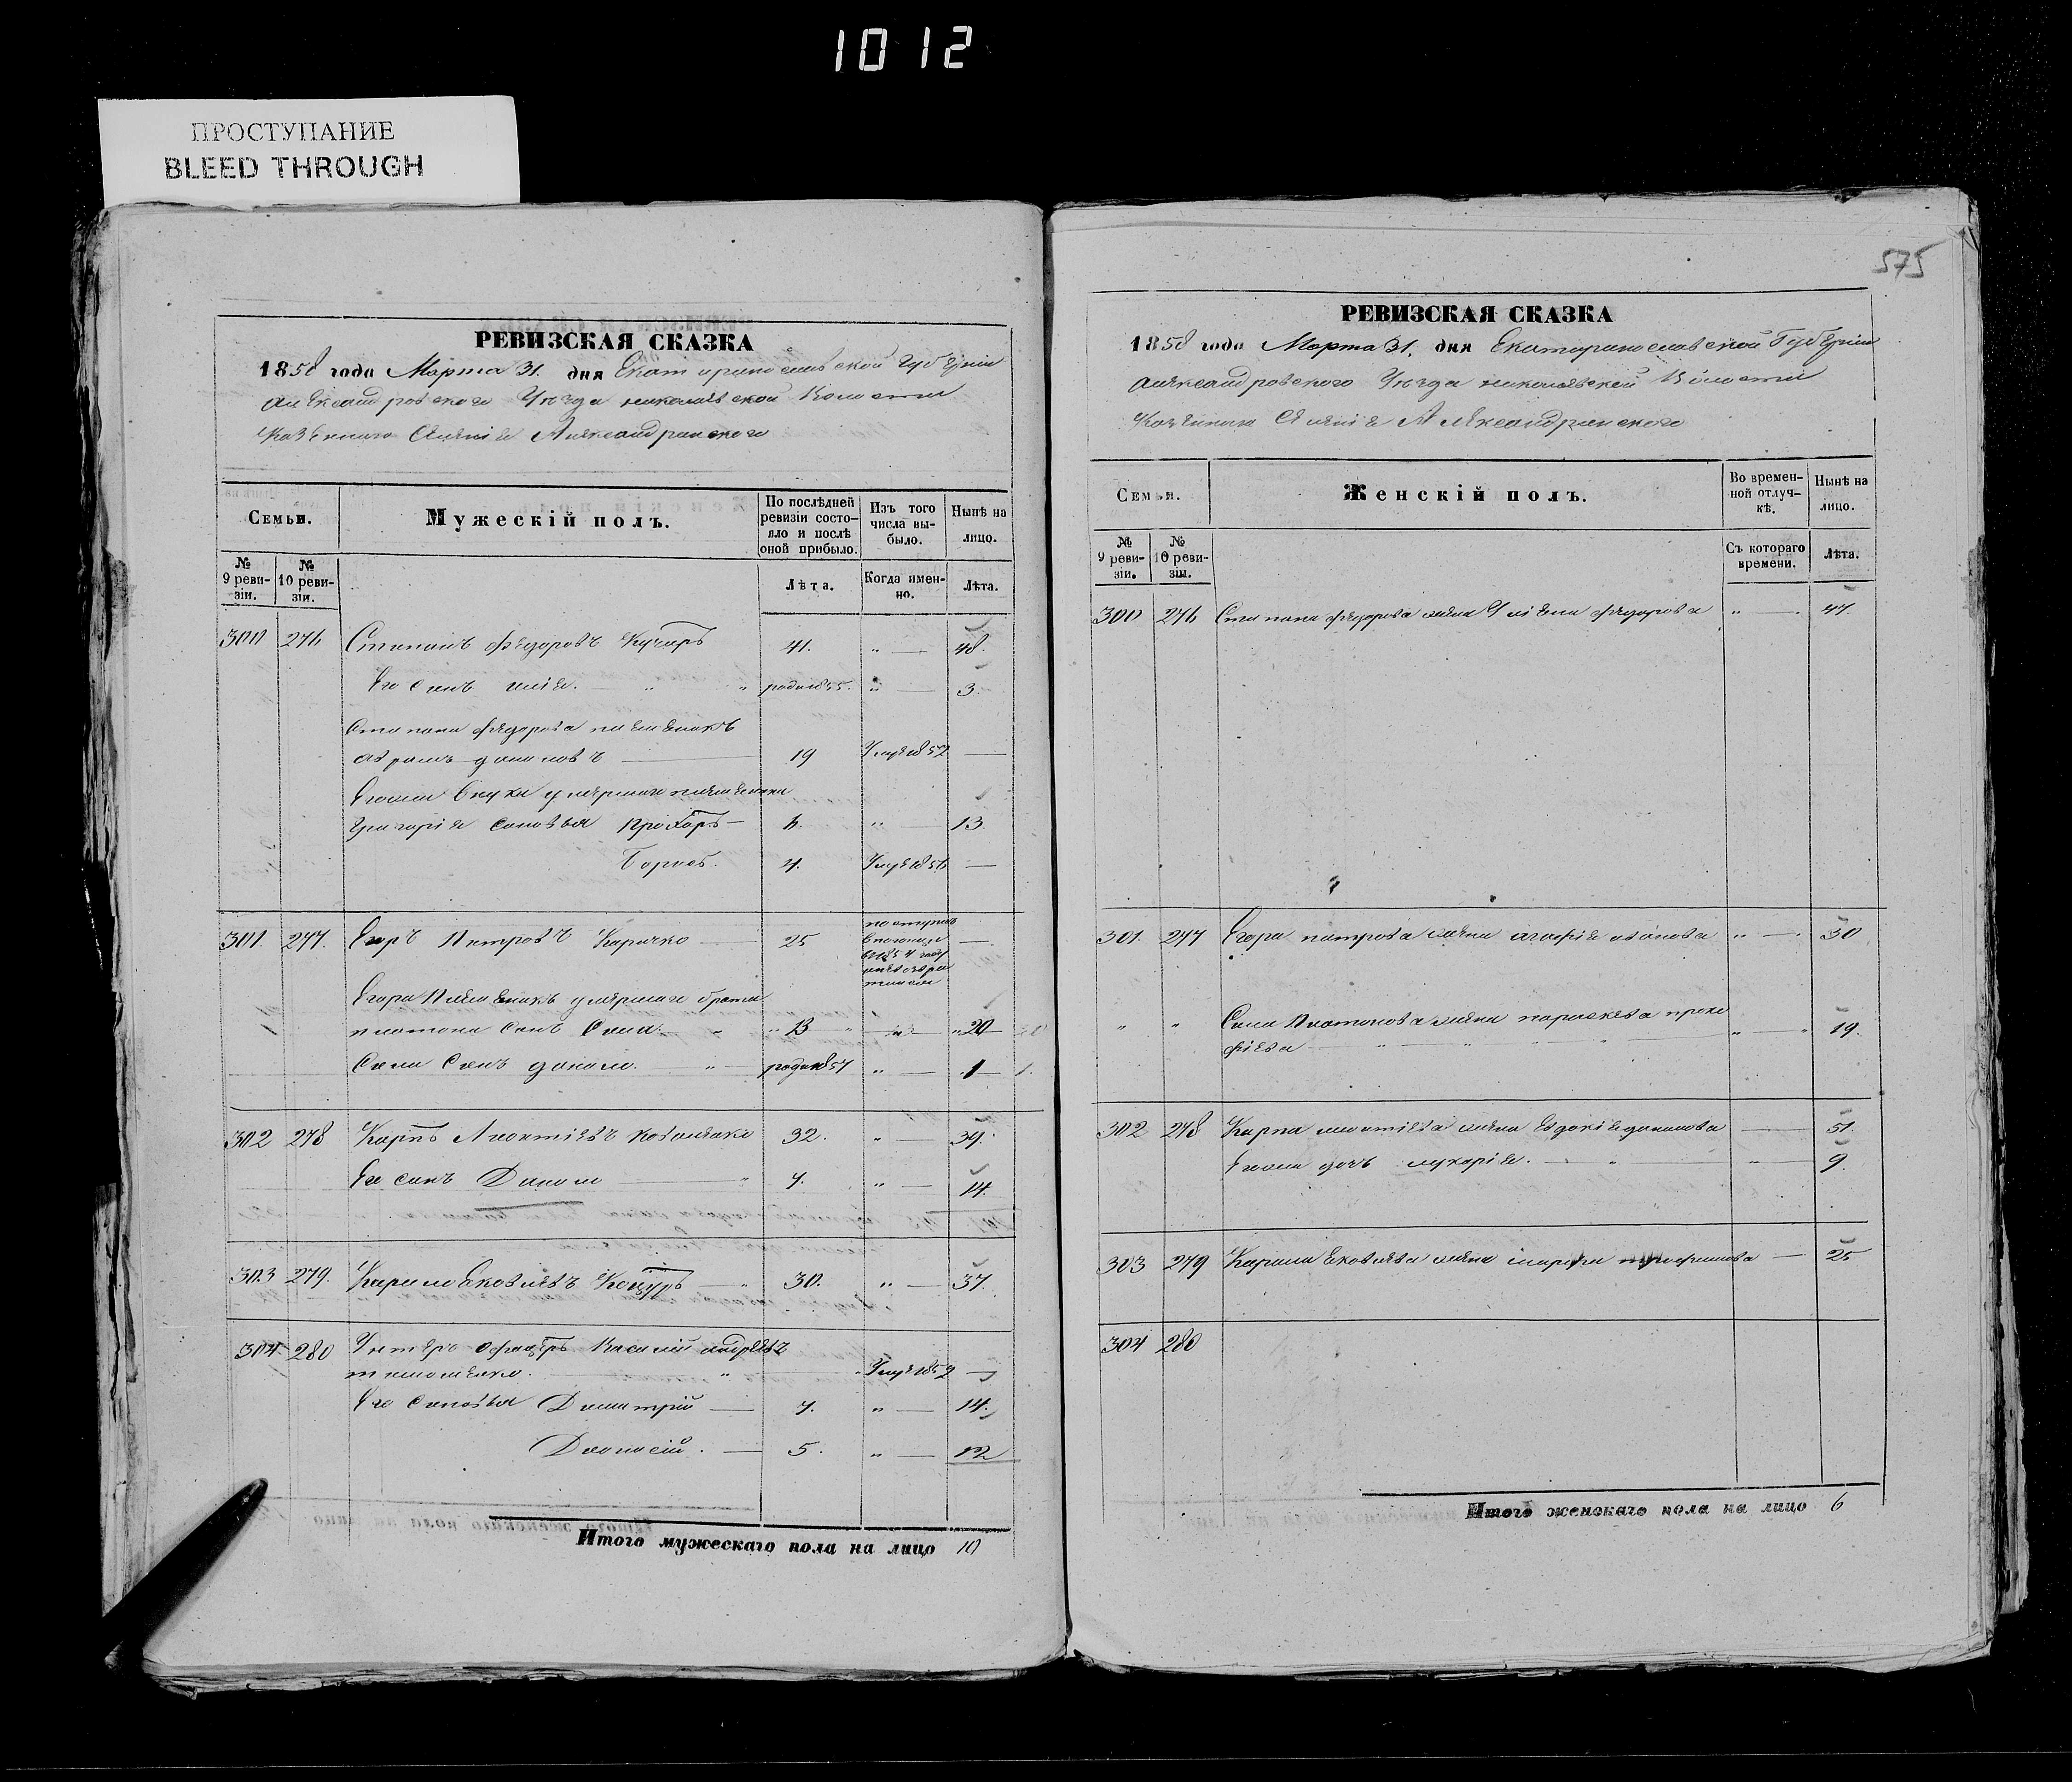 1012
ПРОСТУПАНИЕ
BLEED THROUGH
РЕВИЗСКАЯ СКАЗКА
1858 года Марта 31. дня Екатиринославской Губерніи
Александровского Уезда николаевской Волости
Казенного Селенія Александринского
Семьи.
Мужескій полъ.
По послѣдней ревизіи состояло и послѣ оной прибыло.
Изъ того числа выбыло.
Нынѣ на лицо.
№ 9 ревизіи.
№ 10 ревизіи.
Лѣта.
Когда именно.
Лѣта.
300 276 Степанъ Федоровъ Кучеръ 41. " — 48.
Его Сынъ " " родил 855. " — 3.
Степана Федорова племеникъ
19 Умре 1852 —
Егоже Внуки умершаго племеника
Григорія Сыновья Прохоръ — 6. " — 13.
Борисъ. 4. Умре 1856 —
301. 277. Егоръ Петровъ Киричко — 25
Егора Племеникъ умершаго брата
платона Сынъ Сила. " " 13 " " 20
Силы Сынъ данило. " родил 857 " — 1
302 278 Карпъ Леонтіевъ Коваленко 32. " 39.
Его сынъ Данило — " 7. " — 14.
303 279. Кирило Яковлевъ Коцуръ — " 30. " — 37.
304. 280 Унтеръ Офицеръ Василій андреевъ
тимошенко. " " Умре 1852 —
Его Сыновья Димитрій — 7. " — 14.
5. " — 12
Итого мужескаго пола на лицо 10
575
РЕВИЗСКАЯ СКАЗКА
1858 года Марта 31. дня Екатиринославской Губерніи
Александровского Уезда николаевской Волости
Казенного Селенія Александринского
Семьи.
Женскій полъ.
Во временной отлучкѣ.
Нынѣ на лицо.
№ 9 ревизіи.
№ 10 ревизіи.
Съ котораго времени.
Лѣта.
300 276 Степана Федорова жена Федорова " — 47.
301. 277 Егора петрова жена агафія " — 30
" " Сили Платонова жена параскева проко
фіева " " " " — " 19.
302 278 Карпа леонтіева жена Евдокія данилова — 51.
Егоже дочь — " — " — 9.
303 279 Кирила Яковлева жена — 25
304 280
Итого женскаго пола на лицо 6